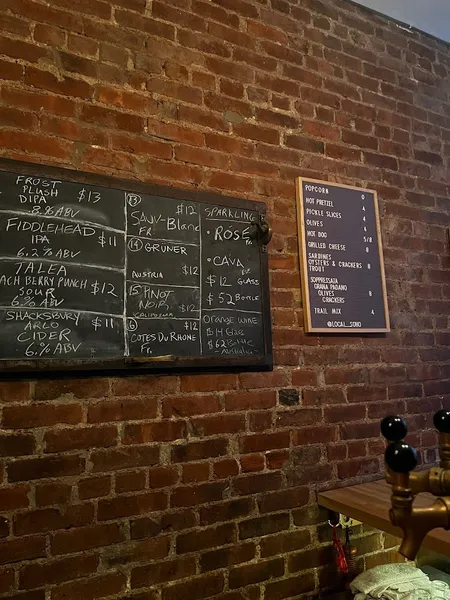 FROST
PLUSH $13
DIPA
8.8% ABV
FIDDLEHEAD
IPA $11
6.2% ABV
TALEA
ACH BERRY PUNCH $12
SOUR
6% ABV
SHACKSBURY $11
ARLO
CIDER
6.% ABV
13 $12
SAUV-Blanc
FR.
14 GRÜNER
AUSTRIA $12
15 PINOT
NOIR
CALIFORNIA $12
16
COTES DU RHONE
Fr.
SPARKLING
• ROSÉ
FR.
• CAVA
$12 GLASS
$52 BOTTLE
ORANGE WINE
POPCORN 0
HOT PRETZEL 4
PICKLE SLICES 4
OLIVES 4
HOT DOG 5/8
GRILLED CHEESE 8
SARDINES
OYSTERS & CRACKERS 8
TROUT
SOPPRESSATA
GRANA PADANO
OLIVES 8
CRACKERS
TRAIL MIX 4
@LOCAL_SONO